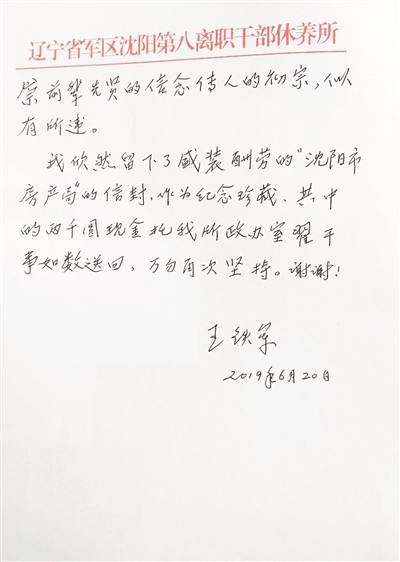 辽宁省军区沈阳第八离职干部休养所
崇前辈先贤的信念传人的初宗，似
有所违。
我欣然留下了盛装酬劳的“沈阳市
房产局”的信封，作为纪念珍藏、其中
的两千圆现金托我所政办室翟干
事如数送回，万勿再次坚持。谢谢！
王铁军
2019年6月20日